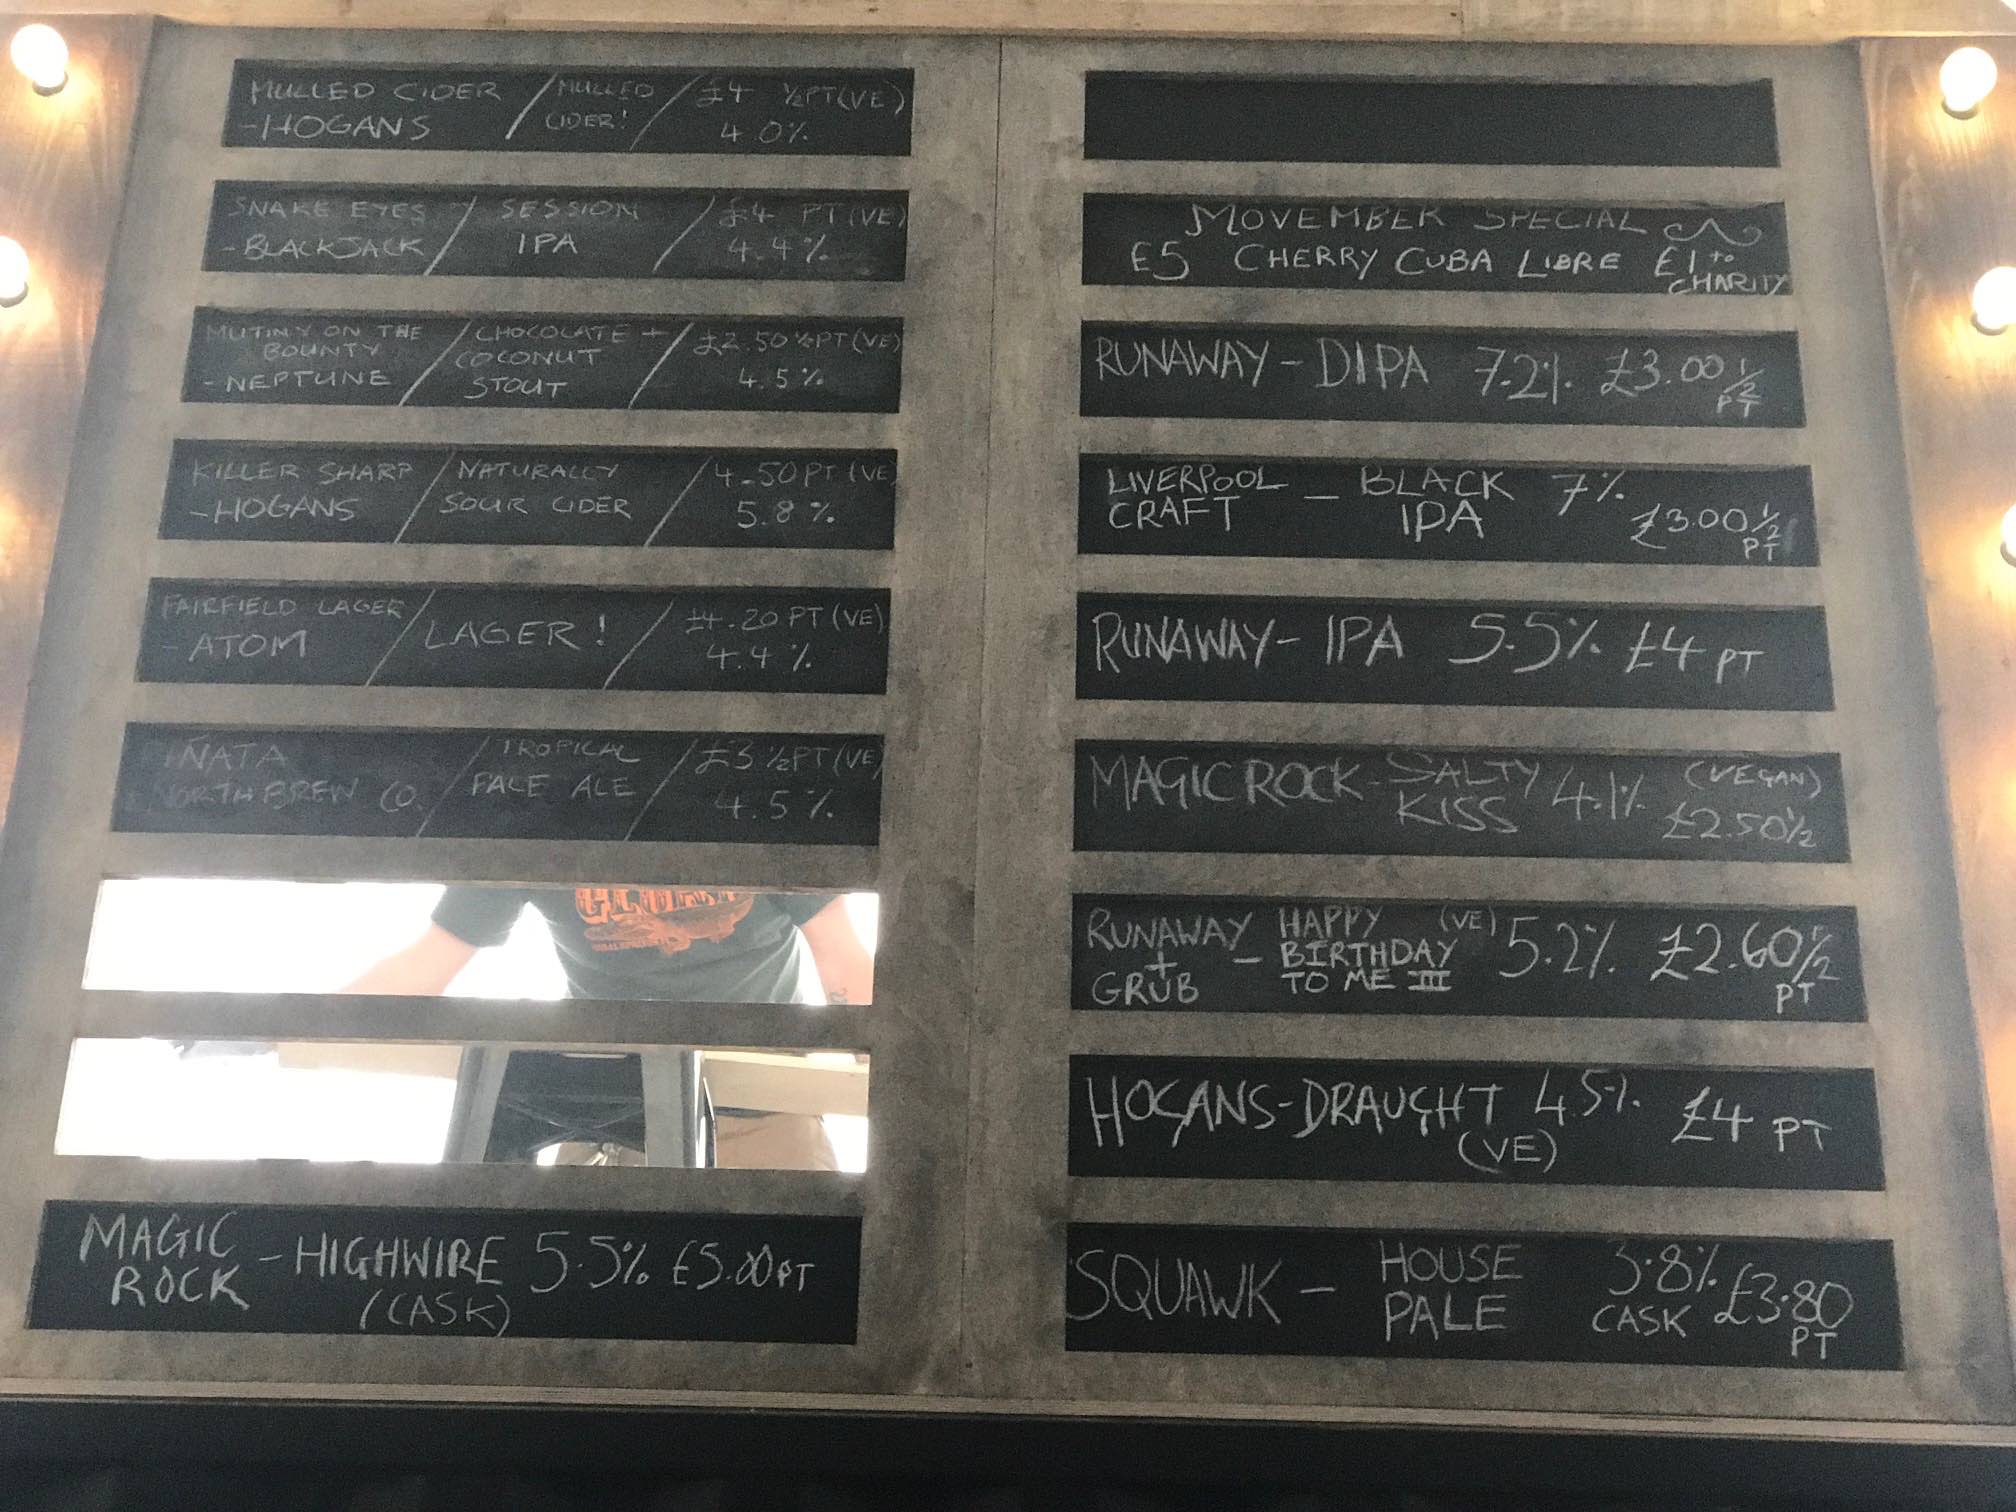 MULLED CIDER / MULLED / £4 ½PT(VE)
-HOGANS CIDER! 4.0%
SNAKE EYES / SESSION / £4 PT(VE)
-BLACKJACK IPA 4.4%
MUTINY ON THE / CHOCOLATE + / £2.50 ½PT(VE)
BOUNTY COCONUT 4.5%
-NEPTUNE STOUT
KILLER SHARP / NATURALLY / 4.50PT (VE
-HOGANS SOUR CIDER 5.8%
FAIRFIELD LAGER / LAGER! / £4.20 PT (VE)
-ATOM 4.4%
PIÑATA / TROPICAL / £3 ½PT(VE)
NORTH BREW CO. PALE ALE 4.5%
MAGIC - HIGHWIRE 5.5% £5.00PT
ROCK (CASK)
MOVEMBER SPECIAL
£5 CHERRY CUBA LIBRE £1 to
CHARITY
RUNAWAY - DIPA 7.2% £3.00 ½
PT
LIVERPOOL - BLACK 7%
CRAFT IPA £3.00 ½
PT
RUNAWAY - IPA 5.5% £4 PT
MAGIC ROCK - SALTY 4.1% (VEGAN)
KISS £2.50 ½
RUNAWAY HAPPY (VE)
+ - BIRTHDAY 5.2% £2.60 ½
GRUB TO ME III PT
HOGANS - DRAUGHT 4.5% £4 PT
(VE)
SQUAWK - HOUSE 3.8% £3.80
PALE CASK PT